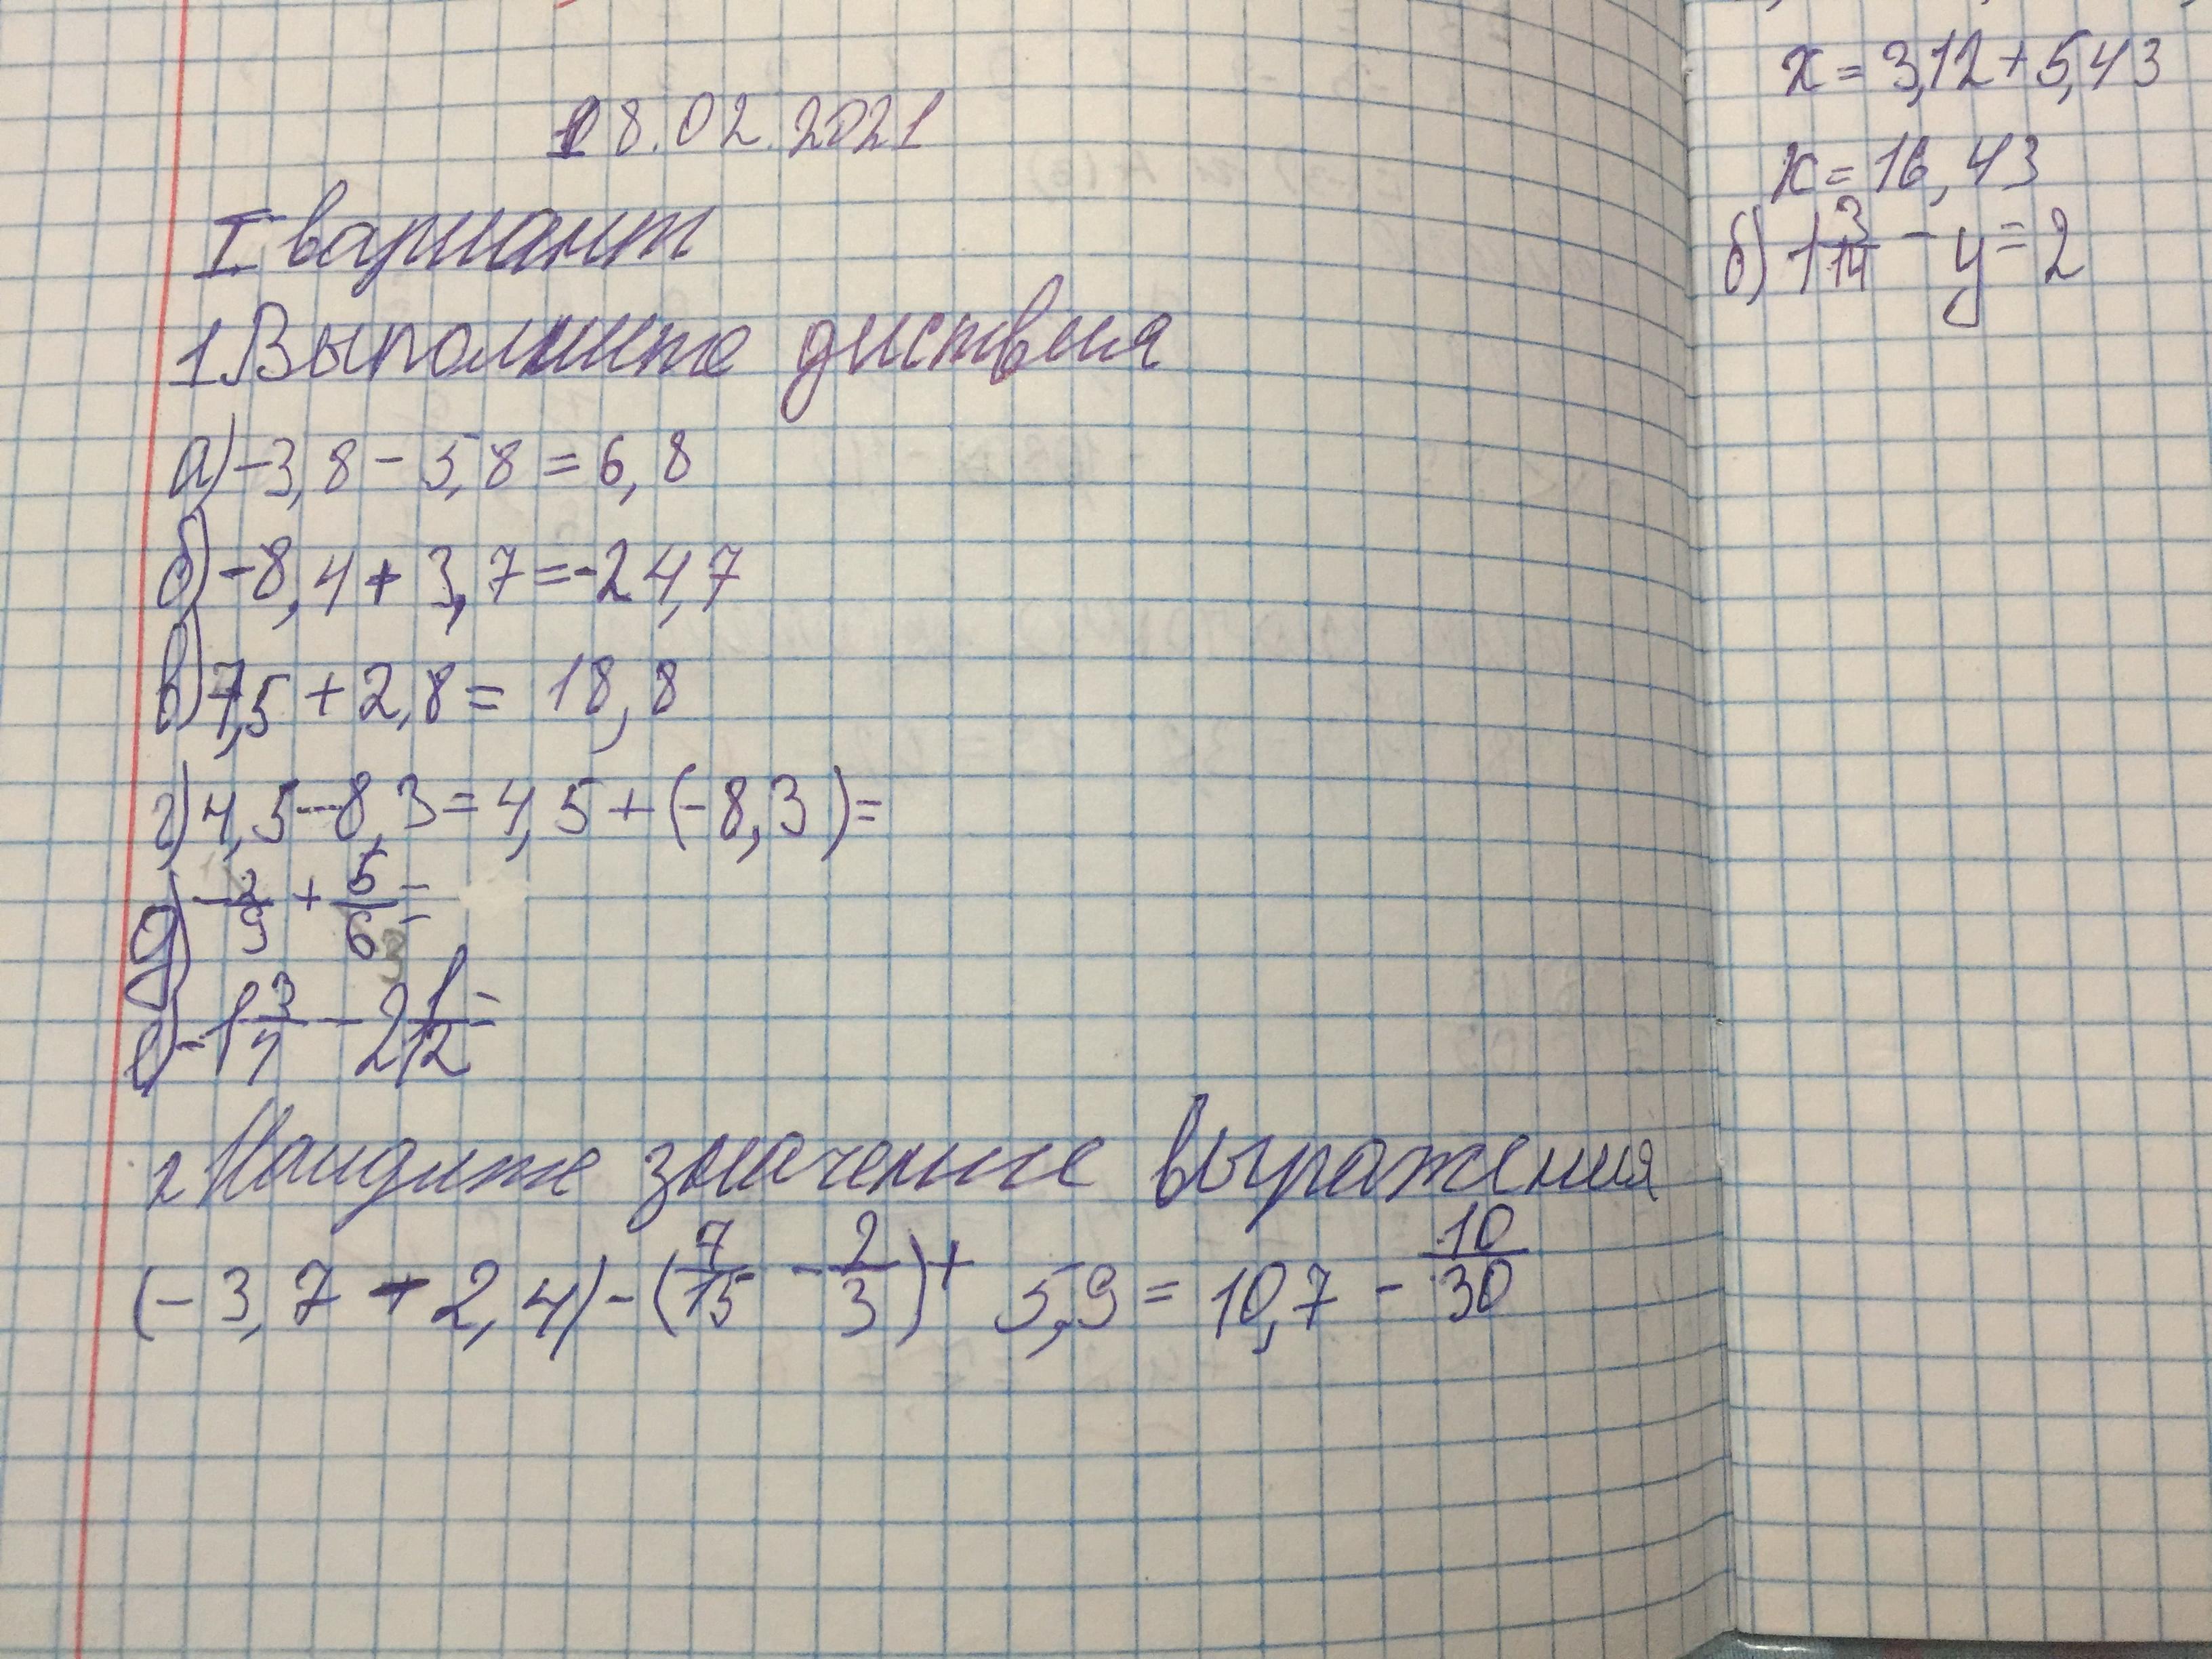 18.02.2021
I вариант
1. Выполните диствия
а) -3,8 - 5,8 = 6,8
б) -8,4 + 3,7 = -24,7
в) 7,5 + 2,8 = 18,8
г) 4,5 - 8,3 = 4,5 + (-8,3) =
д) - 2/9 + 5/6 =
е) -1 3/7 - 2 1/12 =
2 Наидите значение выражения
(-3,7 - 2,4) - (7/15 - 2/3) + 5,9 = 10,7 - 10/30
х = 3,12 + 5,43
х = 16,43
б) 1 3/14 - y = 2